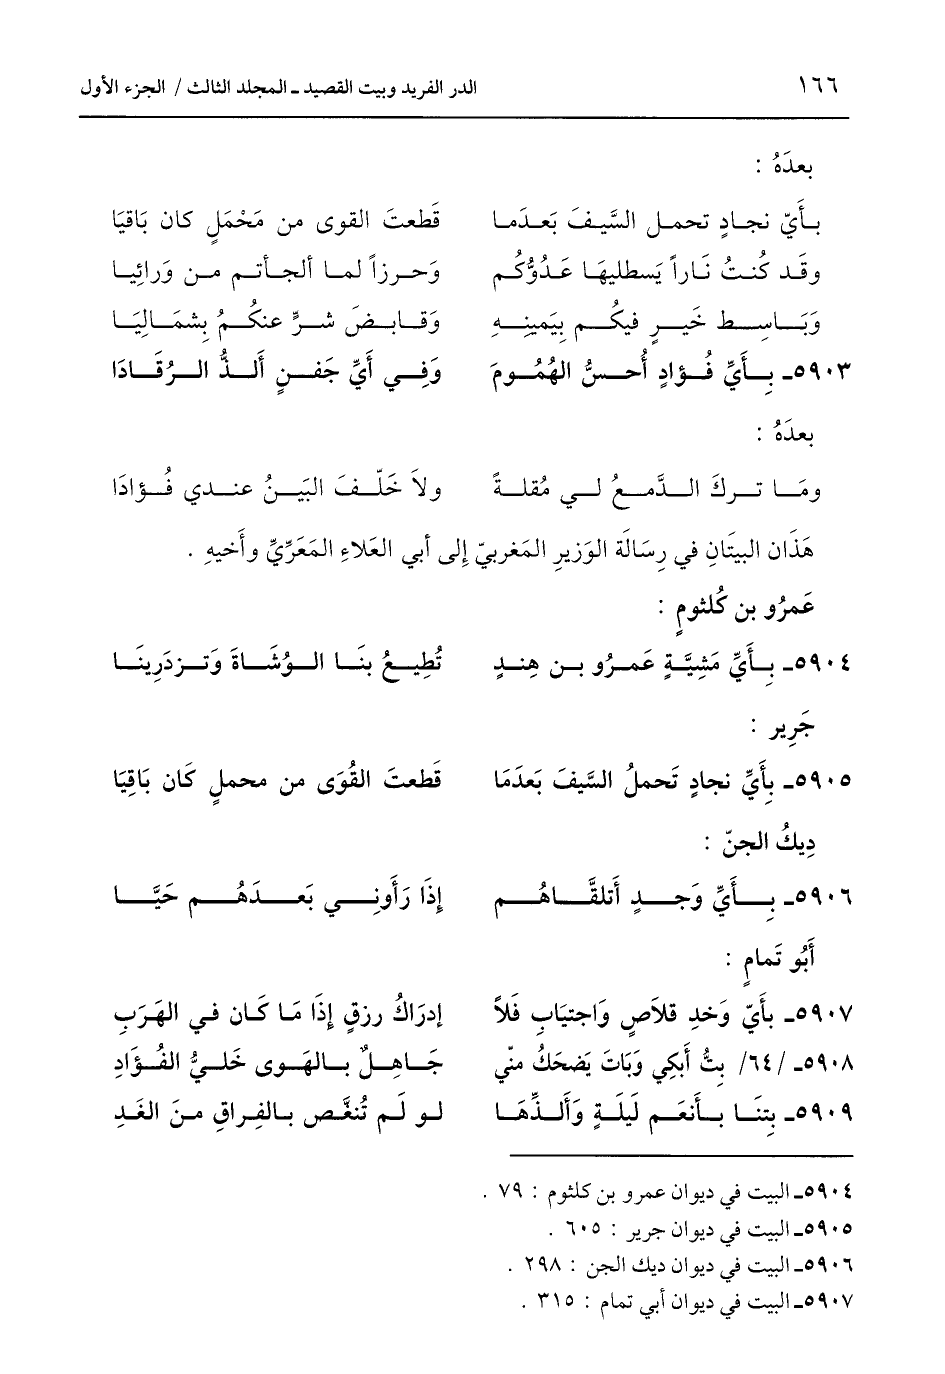 ١٦٦ الدر الفريد وبيت القصيد ـ المجلد الثالث / الجزء الأول
بعدَهُ :
بأَيّ نجادٍ تحمل السَّيفَ بَعدَما قَطعتَ القوى من مَحْمَلٍ كان بَاقيَا
وقَد كُنتُ نَاراً يَسطليهَا عَدُوُّكُم وَحرزاً لما ألجأتم من وَرائيا
وَبَاسِط خَيرٍ فيكُم بِيَمينِهِ وَقابضَ شرٍّ عنكُمُ بِشمَاليَا
٥٩٠٣ـ بِأَيِّ فُؤادٍ أُحسُّ الهُمُومَ وَفِي أَيِّ جَفنٍ أَلذُّ الرُقَادَا
بعدَهُ :
ومَا تركَ الدَّمعُ لي مُقلةً ولاَ خَلّفَ البَينُ عندي فُؤادَا
هَذَان البيتَانِ في رِسَالَة الوَزيرِ المَغربيّ إلى أبي العَلاءِ المَعَرِّيِّ وأَخيهِ .
عَمرُو بن كُلثومٍ :
٥٩٠٤ـ بِأَيِّ مَشِيَّةٍ عَمرُو بن هِندٍ تُطِيعُ بنَا الوُشَاةَ وَتزدَرِينَا
جَرِير :
٥٩٠٥ـ بِأَيِّ نجادٍ تَحملُ السَّيفَ بَعدَمَا قَطعتَ القُوَى من محملٍ كَان بَاقِيَا
دِيكُ الجنّ :
٥٩٠٦ـ بِأَيِّ وَجدٍ أَتلقَّاهُم إِذَا رَأَونِي بَعدَهُم حَيَّا
أَبُو تَمامٍ :
٥٩٠٧ـ بأَيّ وَخدِ قلاَصٍ وَاجتيَابِ فَلاً إدرَاكُ رزقٍ إِذَا مَا كَان في الهَرَبِ
٥٩٠٨ـ /٦٤/ بِتُّ أَبكِي وَبَاتَ يَضحَكُ منّي جَاهلٌ بالهَوى خَليُّ الفُؤَادِ
٥٩٠٩ـ بِتنَا بأَنعَم لَيلَةٍ وَأَلذِّهَا لو لَم تُنغَّص بالفِراقِ منَ الغَدِ
٥٩٠٤ـ البيت في ديوان عمرو بن كلثوم : ٧٩ .
٥٩٠٥ـ البيت في ديوان جرير : ٦٠٥ .
٥٩٠٦ـ البيت في ديوان ديك الجن : ٢٩٨ .
٥٩٠٧ـ البيت في ديوان أبي تمام : ٣١٥ .